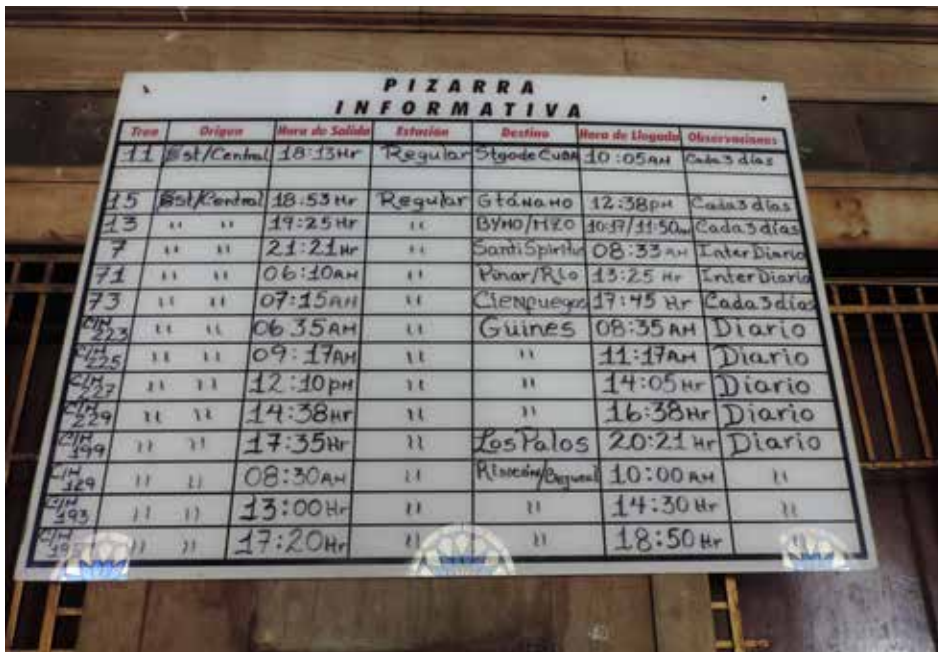 PIZARRA
INFORMATIVA
Tren Origen Hora de Salida Estación Destino Hora de Llegada Observaciones
11 Est/Central 18:13Hr Regular Stgode CUBA 10:05AM Cada 3 días
15 Est/Central 18:53Hr Regular Gtánamo 12:38pm Cada3días
13 " " 19:25Hr " BYMO/MZO 10:17/11:50am Cada3días
7 " " 21:21Hr " SantiSpiritus 08:33AM InterDiario
71 " " 06:10AM " Pinar/Rio 13:25 Hr InterDiario
73 " " 07:15AM " Cienfuegos 17:45 Hr Cada3días
C/H 223 " " 06 35AM " Güines 08:35AM Diario
C/H 225 " " 09:17AM " " 11:17AM Diario
C/H 227 " " 12:10pm " " 14:05Hr Diario
C/H 229 " " 14:38Hr " " 16:38Hr Diario
C/H 199 " " 17:35Hr " Los Palos 20:21 Hr Diario
C/H " " 08:30AM " Rincón/ 10:00AM "
C/H 193 " " 13:00Hr " " 14:30Hr "
C/H " " 17:20Hr " " 18:50Hr "